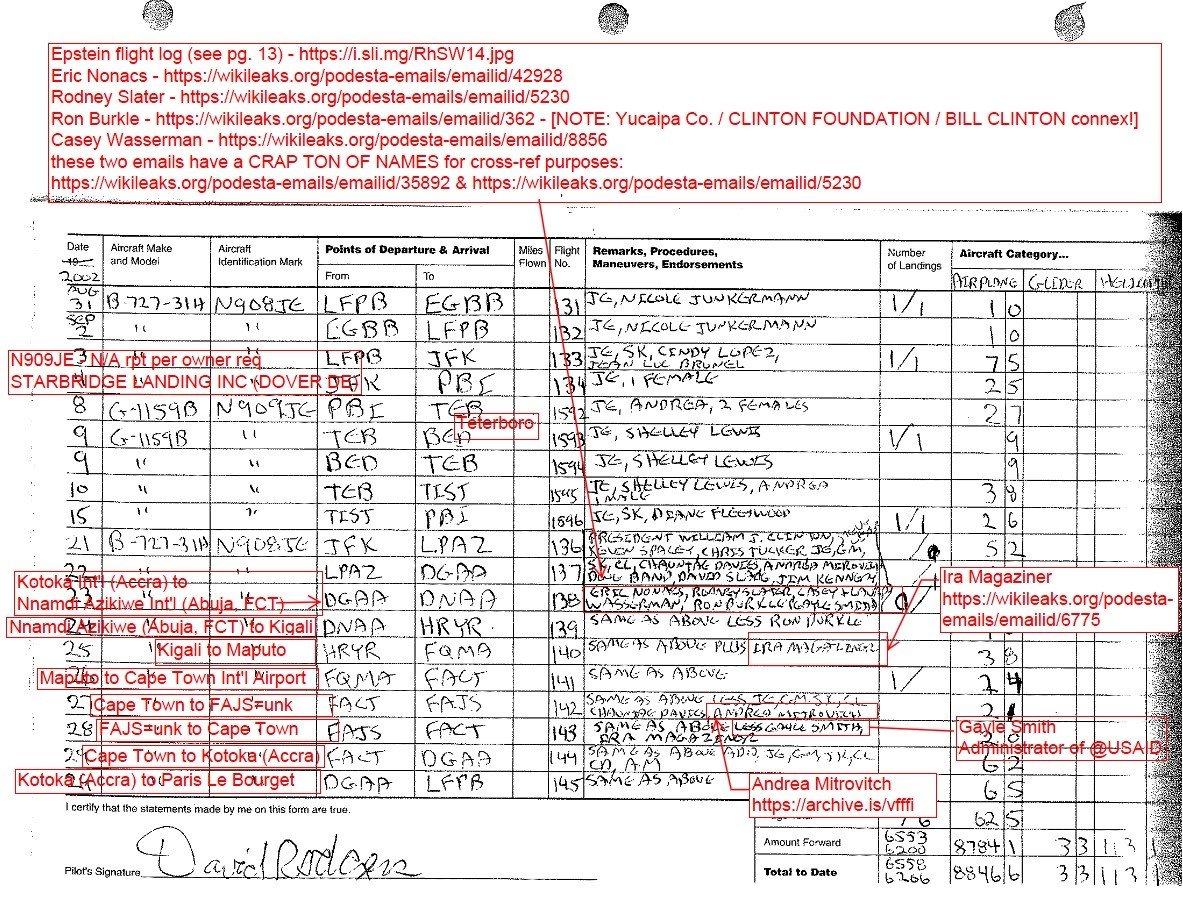 Epstein flight log (see pg. 13) - https://i.sli.mg/RhSW14.jpg
Eric Nonacs - https://wikileaks.org/podesta-emails/emailid/42928
Rodney Slater - https://wikileaks.org/podesta-emails/emailid/5230
Ron Burkle - https://wikileaks.org/podesta-emails/emailid/362 - [NOTE: Yucaipa Co. / CLINTON FOUNDATION / BILL CLINTON connex!]
Casey Wasserman - https://wikileaks.org/podesta-emails/emailid/8856
these two emails have a CRAP TON OF NAMES for cross-ref purposes:
https://wikileaks.org/podesta-emails/emailid/35892 & https://wikileaks.org/podesta-emails/emailid/5230
Date 2002 Aircraft Make and Model Aircraft Identification Mark Points of Departure & Arrival From To Miles Flown Flight No. Remarks, Procedures, Maneuvers, Endorsements Number of Landings Aircraft Category...
AIRPLANE GLIDER
AUG 31 B-727-31H N908JE LFPB EGBB 131 JE, NICOLE JUNKERMANN 1/1 1 0
SEP 2 " " EGBB LFPB 132 JE, NICOLE JUNKERMANN 1 0
3 " LFPB JFK 133 JE, SK, CINDY LOPEZ, JEAN LUC BRUNEL 1/1 7 5
N909JE - N/A rpt per owner req
STARBRIDGE LANDING INC (DOVER DE)
JFK PBI 134 JE, 1 FEMALE 2 5
8 G-1159B N909JE PBI TEB 1592 JE, ANDREA, 2 FEMALES 2 7
Teterboro
9 G-1159B " TEB BED 1593 JE, SHELLEY LEWIS 1/1 9
9 " " BED TEB 1594 JE, SHELLEY LEWIS 9
10 " " TEB TIST 1595 JE, SHELLEY LEWIS, ANDREA 1 MALE 3 8
15 " " TIST PBI 1596 JE, SK, DIANE FLEETWOOD 1/1 2 6
21 B-727-31H N908JE JFK LPAZ 136 PRESIDENT WILLIAM J. CLINTON, KEVIN SPACEY, CHRIS TUCKER, JE, GM, 5 2
22 LPAZ DGAA 137 SK, CL, CHAUNTAE DAVIES, ANDREA MITROVICH DOUG BAND, DAVID SLANG, JIM KENNEY,
Kotoka Int'l (Accra) to
Nnamdi Azikiwe Int'l (Abuja, FCT)
23 DGAA DNAA 138 ERIC NONACS, RODNEY SLATER, CASEY + LAURA WASSERMAN, RON BURKLE, GAYLE SMITH
Nnamdi Azikiwe (Abuja, FCT) to Kigali
24 DNAA HRYR 139 SAME AS ABOVE LESS RON BURKLE
Kigali to Maputo
25 HRYR FQMA 140 SAME AS ABOVE PLUS IRA MAGAZINER 3 8
Maputo to Cape Town Int'l Airport
26 FQMA FACT 141 SAME AS ABOVE 1/ 2 4
Cape Town to FAJS=unk
27 FACT FAJS 142 SAME AS ABOVE LESS JE, GM, SK, CL CHAUNTAE DAVIES, ANDREA MITROVICH 2
FAJS=unk to Cape Town
28 FAJS FACT 143 SAME AS ABOVE LESS GAYLE SMITH, IRA MAGAZINER 2 0
Cape Town to Kotoka (Accra)
29 FACT DGAA 144 SAME AS ABOVE ADD JE, GM, SK, CL CD, AM 6 2
Kotoka (Accra) to Paris Le Bourget
DGAA LFPB 145 SAME AS ABOVE 6 5
Ira Magaziner
https://wikileaks.org/podesta-
emails/emailid/6775
Gayle Smith
Administrator of @USAID
Andrea Mitrovitch
https://archive.is/vfffi
I certify that the statements made by me on this form are true.
Pilot's Signature David Rodgers
62 5
Amount Forward 6553 6200 8784 1 3 3 113 1
Total to Date 6558 6206 8846 6 3 3 113 1